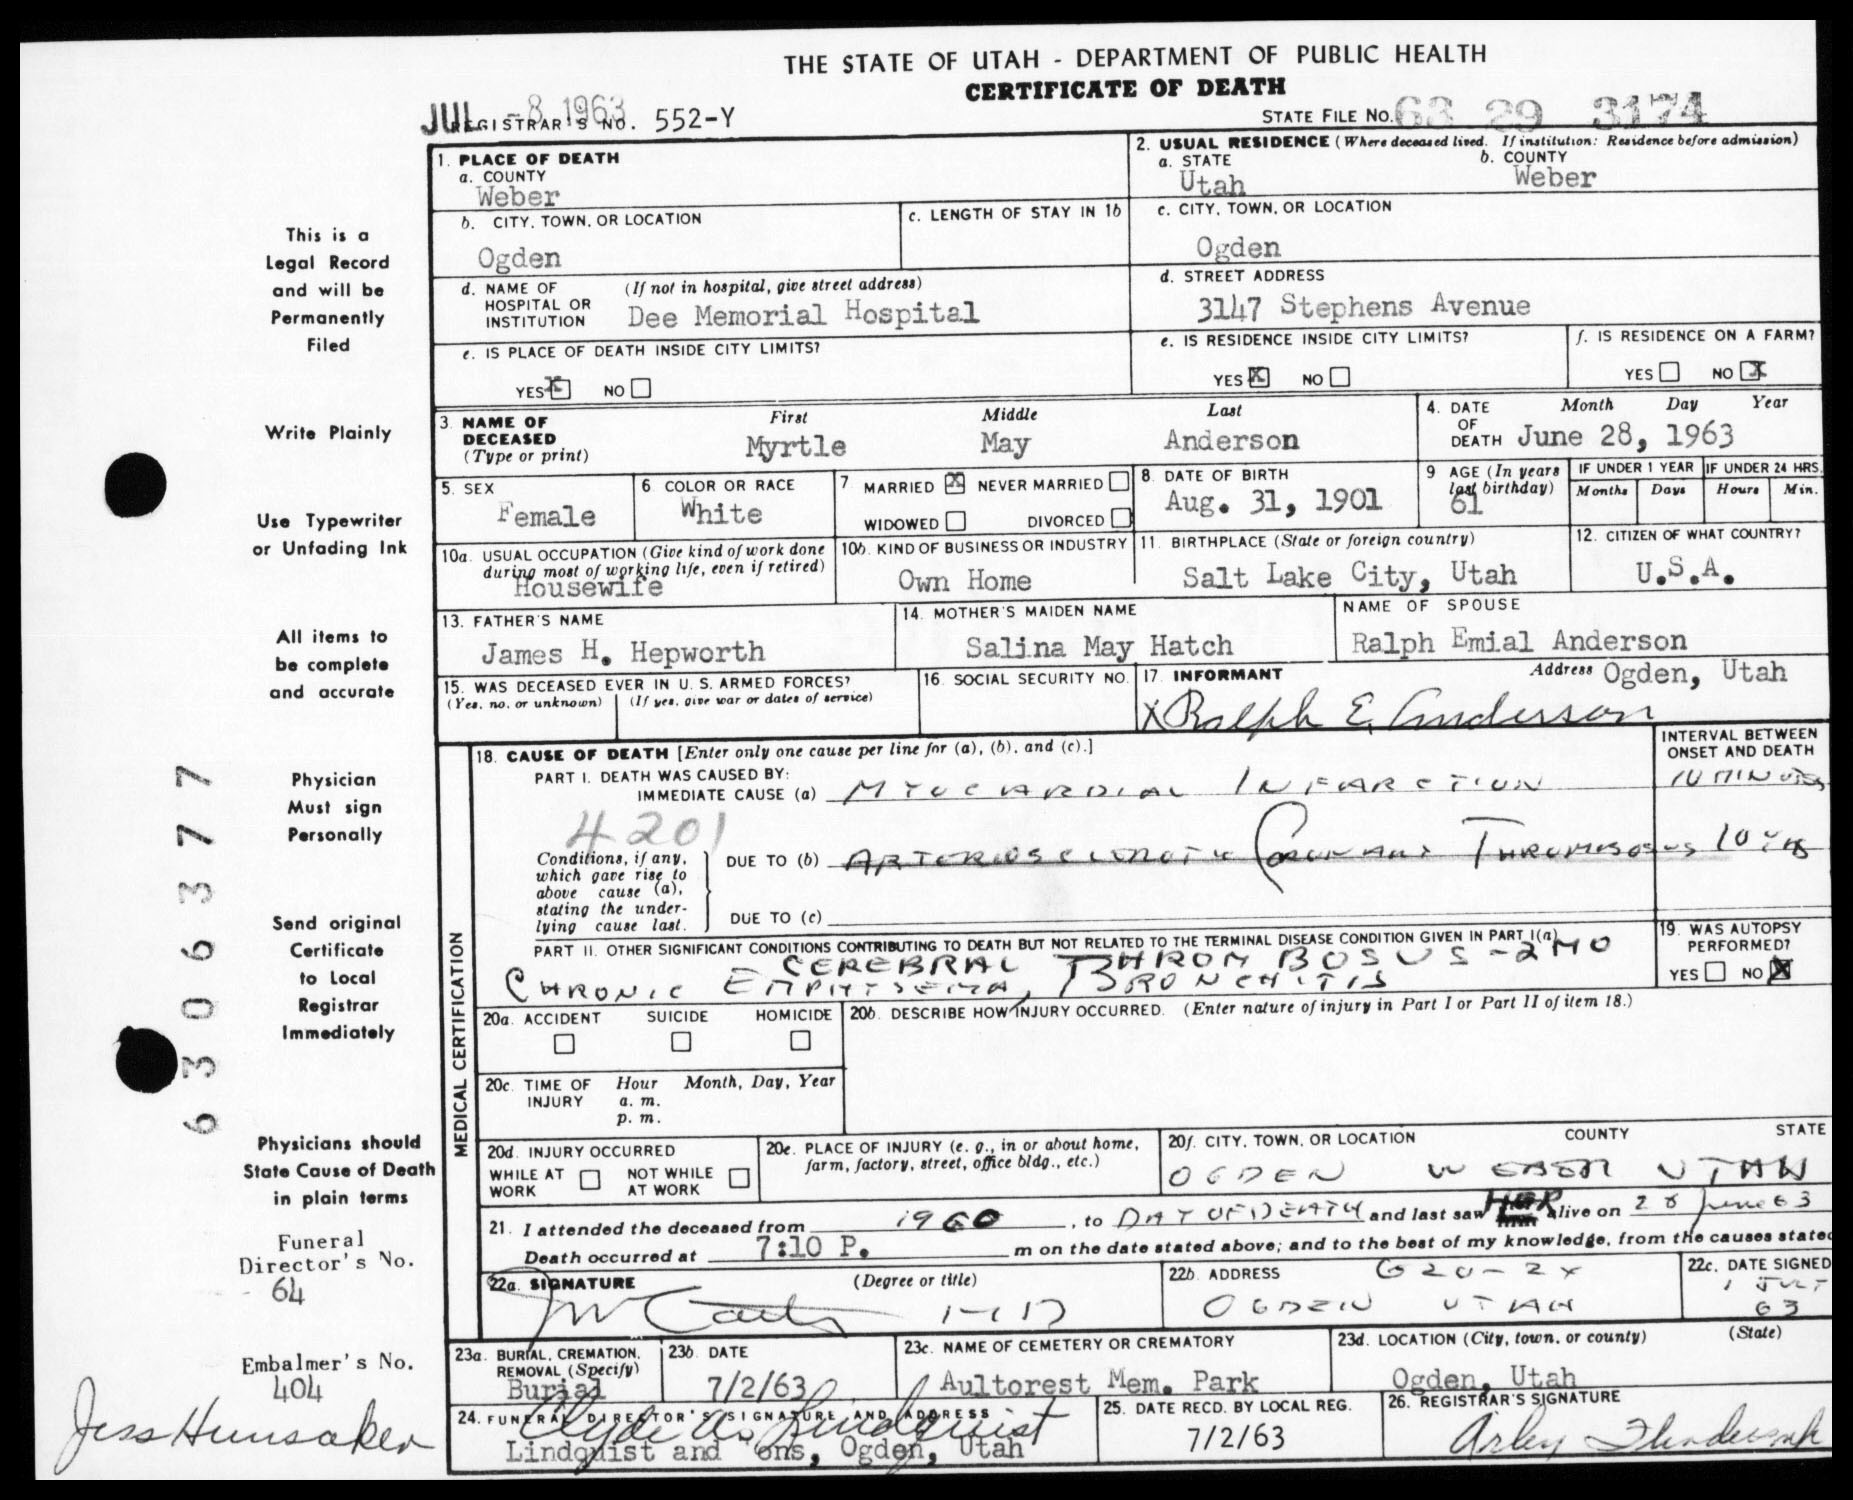 THE STATE OF UTAH - DEPARTMENT OF PUBLIC HEALTH
CERTIFICATE OF DEATH
JUL -8 1963
REGISTRAR'S NO. 552-Y
STATE FILE NO. 63 29 3174
1. PLACE OF DEATH
a. COUNTY
Weber
2. USUAL RESIDENCE (Where deceased lived. If institution: Residence before admission)
a. STATE b. COUNTY
Utah Weber
b. CITY, TOWN, OR LOCATION
Ogden
c. LENGTH OF STAY IN 1b
c. CITY, TOWN, OR LOCATION
Ogden
d. NAME OF HOSPITAL OR INSTITUTION (If not in hospital, give street address)
Dee Memorial Hospital
d. STREET ADDRESS
3147 Stephens Avenue
e. IS PLACE OF DEATH INSIDE CITY LIMITS?
YES X NO
e. IS RESIDENCE INSIDE CITY LIMITS?
YES X NO
f. IS RESIDENCE ON A FARM?
YES NO X
3. NAME OF DECEASED (Type or print)
First Middle Last
Myrtle May Anderson
4. DATE OF DEATH Month Day Year
June 28, 1963
5. SEX
Female
6. COLOR OR RACE
White
7. MARRIED X NEVER MARRIED
WIDOWED DIVORCED
8. DATE OF BIRTH
Aug. 31, 1901
9 AGE (In years last birthday)
61
IF UNDER 1 YEAR
Months Days
IF UNDER 24 HRS.
Hours Min.
10a. USUAL OCCUPATION (Give kind of work done during most of working life, even if retired)
Housewife
10b. KIND OF BUSINESS OR INDUSTRY
Own Home
11. BIRTHPLACE (State or foreign country)
Salt Lake City, Utah
12. CITIZEN OF WHAT COUNTRY?
U.S.A.
13. FATHER'S NAME
James H. Hepworth
14. MOTHER'S MAIDEN NAME
Salina May Hatch
NAME OF SPOUSE
Ralph Emial Anderson
15. WAS DECEASED EVER IN U. S. ARMED FORCES?
(Yes, no, or unknown) (If yes, give war or dates of service)
16. SOCIAL SECURITY NO.
17. INFORMANT Address Ogden, Utah
X Ralph E. Anderson
MEDICAL CERTIFICATION
18. CAUSE OF DEATH [Enter only one cause per line for (a), (b), and (c).]
INTERVAL BETWEEN ONSET AND DEATH
PART I. DEATH WAS CAUSED BY:
IMMEDIATE CAUSE (a) MYOCARDIAL INFARCTION 10 MINUTES
4201
Conditions, if any, which gave rise to above cause (a), stating the underlying cause last.
DUE TO (b) ARTERIOSCLEROTIC CORONARY THROMBOSUS 10 YRS
DUE TO (c)
PART II. OTHER SIGNIFICANT CONDITIONS CONTRIBUTING TO DEATH BUT NOT RELATED TO THE TERMINAL DISEASE CONDITION GIVEN IN PART I(a)
CEREBRAL THROMBOSUS - 2 MO
CHRONIC EMPHYSEMA, BRONCHITIS
19. WAS AUTOPSY PERFORMED?
YES NO X
20a. ACCIDENT SUICIDE HOMICIDE
20b. DESCRIBE HOW INJURY OCCURRED. (Enter nature of injury in Part I or Part II of item 18.)
20c. TIME OF INJURY Hour Month, Day, Year
a. m.
p. m.
20d. INJURY OCCURRED
WHILE AT WORK NOT WHILE AT WORK
20e. PLACE OF INJURY (e. g., in or about home, farm, factory, street, office bldg., etc.)
20f. CITY, TOWN, OR LOCATION COUNTY STATE
OGDEN WEBER UTAH
21. I attended the deceased from 1960, to DAY OF DEATH and last saw HER alive on 28 June 63
Death occurred at 7:10 P. m on the date stated above; and to the best of my knowledge, from the causes stated
22a. SIGNATURE (Degree or title)
MD
22b. ADDRESS
OGDEN UTAH
22c. DATE SIGNED
1 JULY
63
23a. BURIAL, CREMATION, REMOVAL (Specify)
Burial
23b. DATE
7/2/63
23c. NAME OF CEMETERY OR CREMATORY
Aultorest Mem. Park
23d. LOCATION (City, town, or county) (State)
Ogden, Utah
24. FUNERAL DIRECTOR'S SIGNATURE AND ADDRESS
Clyde A. Lindquist
Lindquist and ons, Ogden, Utah
25. DATE RECD. BY LOCAL REG.
7/2/63
26. REGISTRAR'S SIGNATURE
This is a
Legal Record
and will be
Permanently
Filed
Write Plainly
Use Typewriter
or Unfading Ink
All items to
be complete
and accurate
Physician
Must sign
Personally
Send original
Certificate
to Local
Registrar
Immediately
Physicians should
State Cause of Death
in plain terms
Funeral
Director's No.
64
Embalmer's No.
404
Jess Hunsaker
6306377